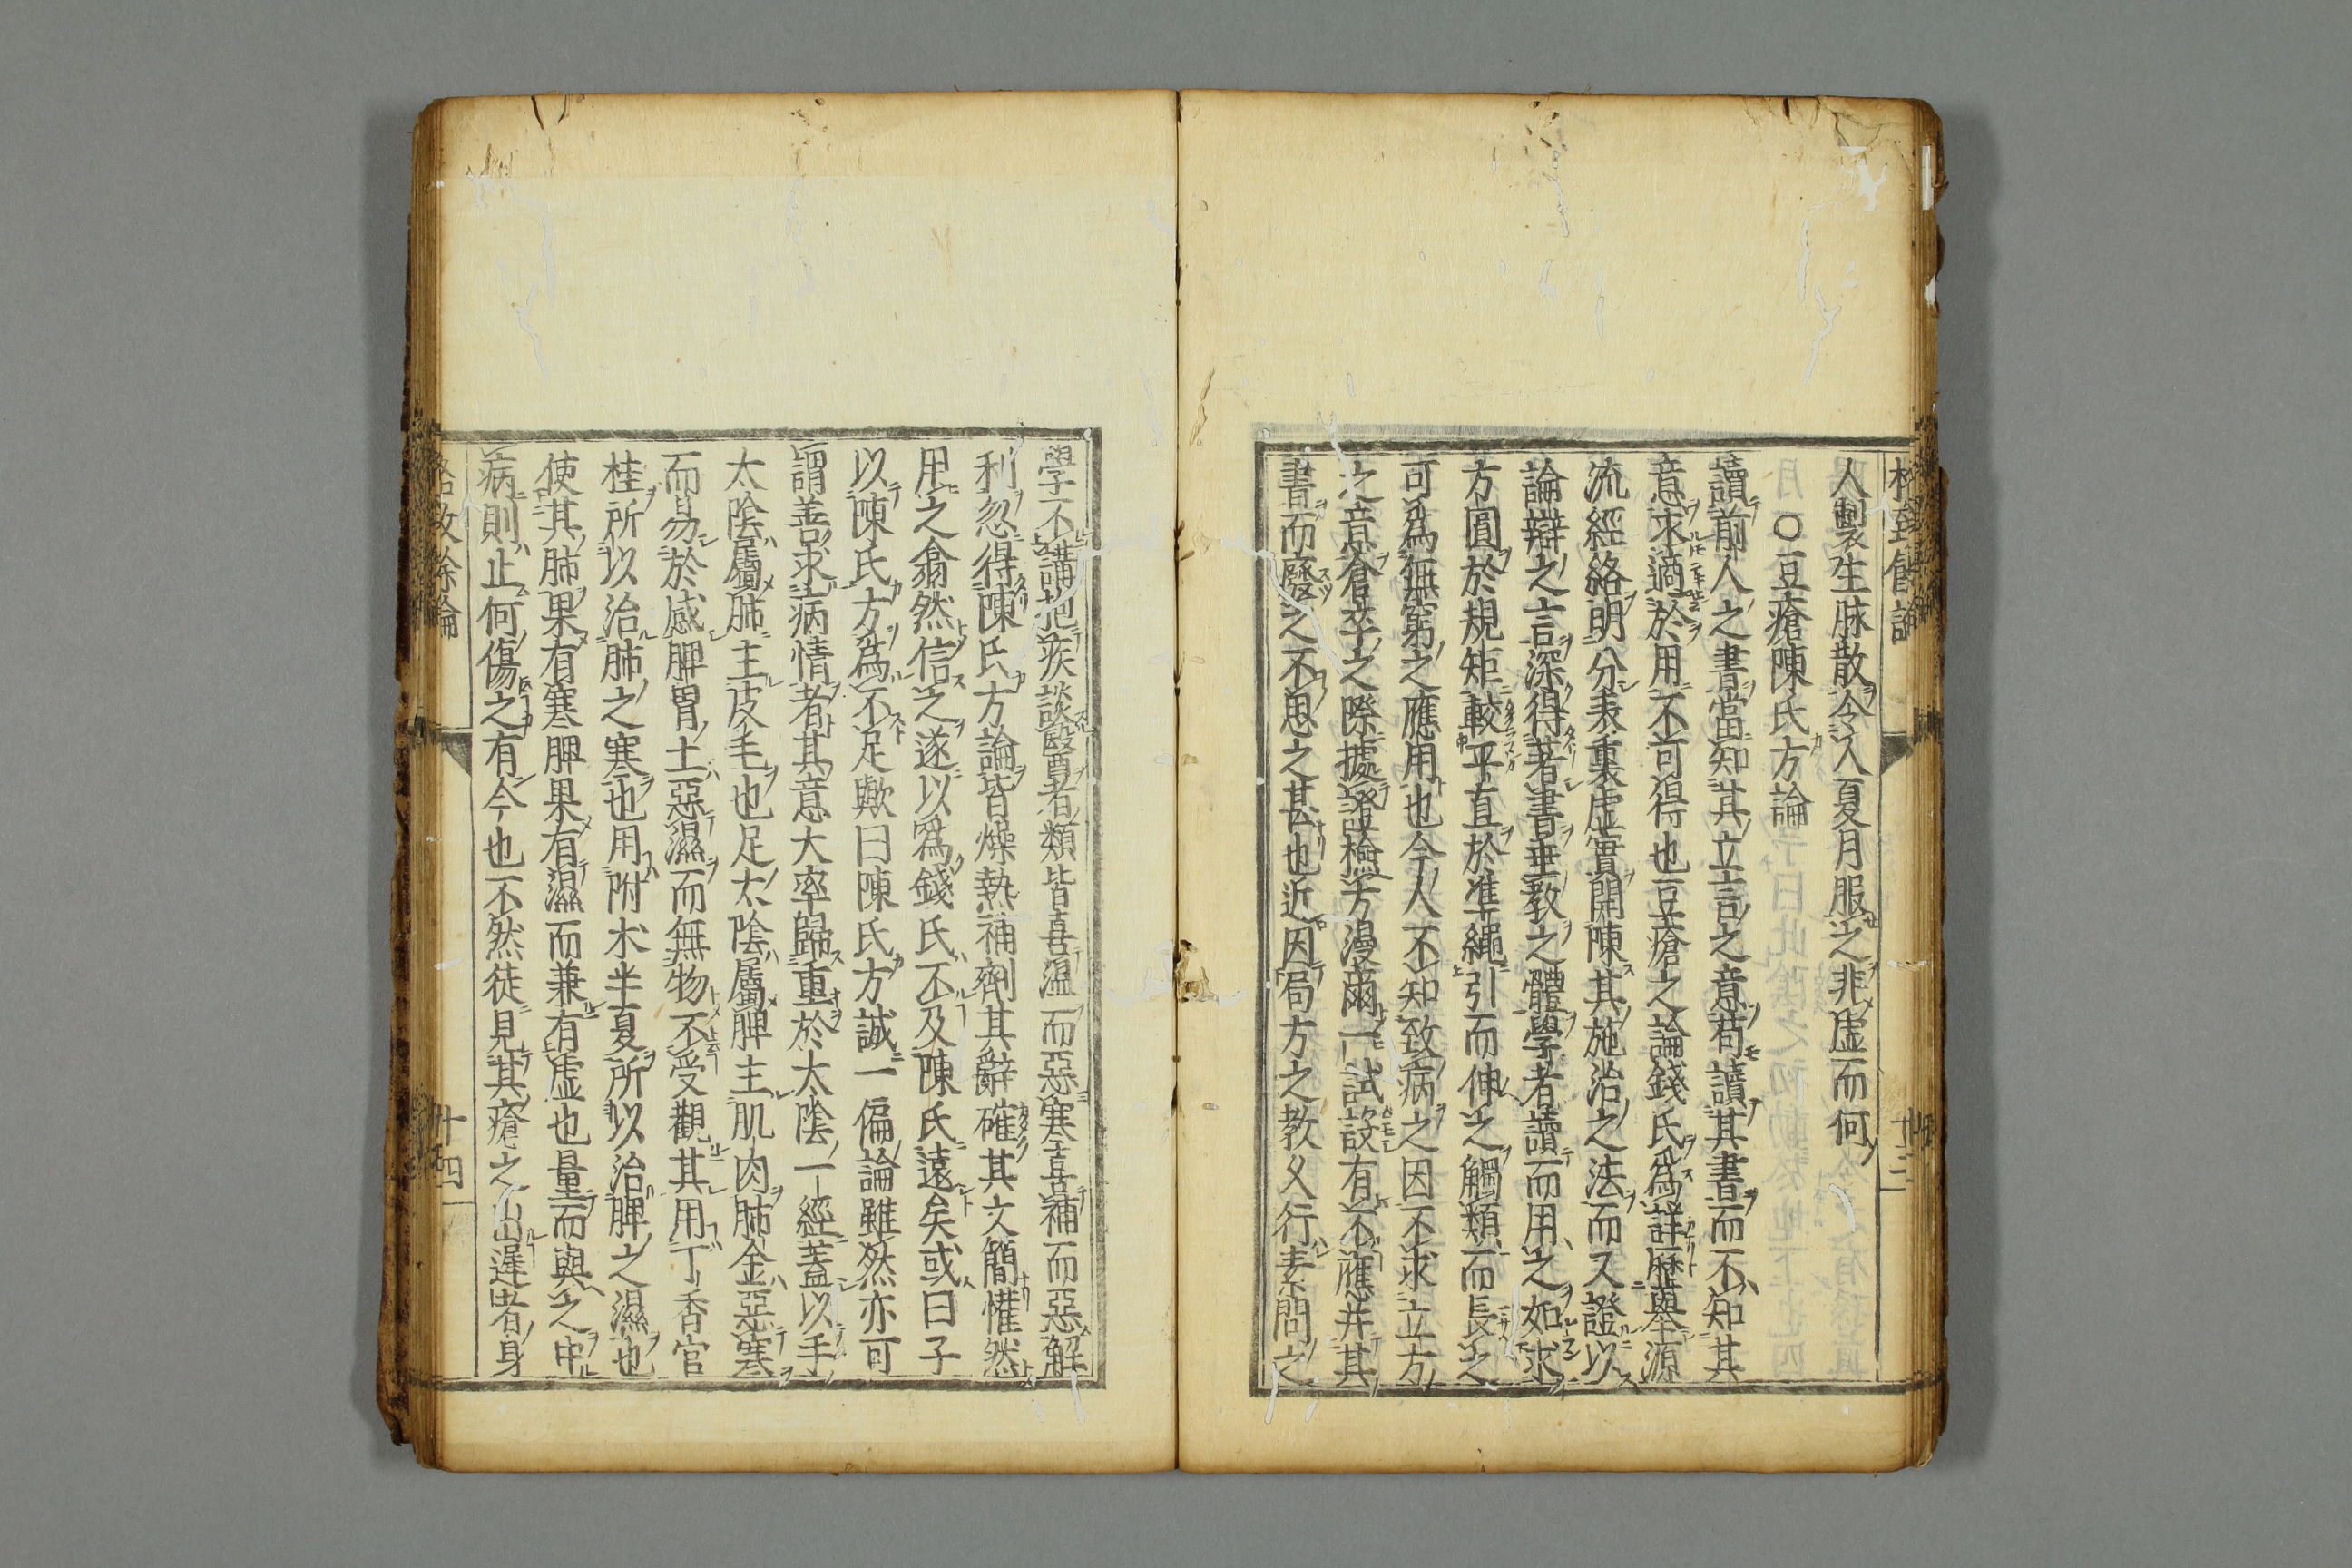 人製生脉散令人夏月服之非虛而何
〇豆瘡陳氏方論
讀前人之書當知其立言之意苟讀其書而不知其
意求適於用不可得也豆瘡之論錢氏爲詳歷舉源
流經絡明分表裏虛實開陳其施治之法而又證以
論辯之言深得著書垂教之體學者讀而用之如求
方圓於規矩較平直於準繩引而伸之觸類而長之
可爲無窮之應用也今人不知致病之因不求立方
之意倉卒之際據證檢方漫爾一試設有不應并其
書而廢之不思之甚也近因局方之教久行素問之
學不講抱疾談醫者類皆喜溫而惡寒喜補而惡解
利忽得陳氏方論皆燥熱補劑其辭確其文簡懽然
用之翕然信之遂以爲錢氏不及陳氏遠矣或曰子
以陳氏方爲不足歟曰陳氏方誠一偏論雖然亦可
謂善求病情者其意大率歸重於太陰一經蓋以手
太陰屬肺主皮毛也足太陰屬脾主肌肉肺金惡寒
而易於感脾胃土惡濕而無物不受觀其用丁香官
桂所以治肺之寒也用附朮半夏所以治脾之濕也
使其肺果有寒脾果有濕而兼有虛也量而與之中
病則止何傷之有今也不然徒見其瘡之出遲者身
格致餘論
十四